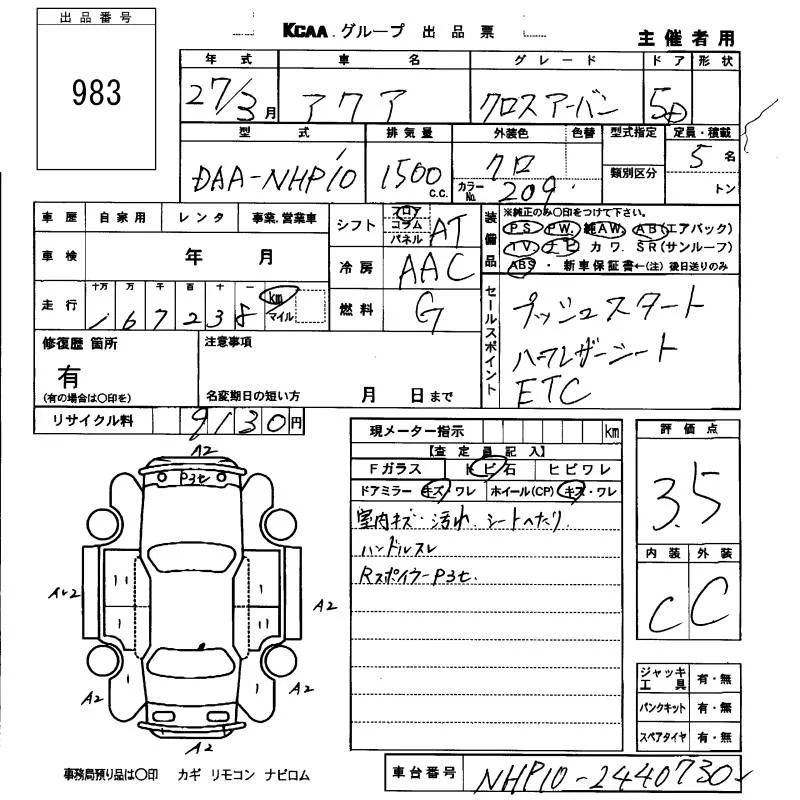 出品番号
983
KCAA グループ 出品票
主催者用
年式 車名 グレード ドア 形状
27/3月 アクア クロスアーバン 5D
型式 排気量 外装色 色替 型式指定 定員・積載
DAA-NHP10 1500 c.c. クロ 類別区分 5名
カラーNo. 209 トン
車歴 自家用 レンタ 事業、営業車
車検 年 月
走行 十万 万 千 百 十 一 km マイル
167238
シフト フロア コラム パネル AT
冷房 AAC
燃料 G
装備品 ※純正のみ〇印をつけて下さい。
PS PW 純AW. AB(エアバック)
TV ナビ カワ. SR(サンルーフ)
ABS・新車保証書←(注)後日送りのみ
セールスポイント
プッシュスタート
ハーフレザーシート
ETC
修復歴 箇所
有
(有の場合は〇印を)
注意事項
名変期日の短い方 月 日まで
リサイクル料 9130円
現メーター指示 km
【査定員記入】
Fガラス トビ石 ヒビワレ
ドアミラー キズ・ワレ ホイール(CP) キズ・ワレ
室内キズ・汚れ シートへたり
ハンドルスレ
RスポイラーP3t.
評価点
3.5
内装 外装
C C
ジャッキ工具 有・無
パンクキット 有・無
スペアタイヤ 有・無
A2
P3t
A2
A2
A2
A2
事務局預り品は〇印 カギ リモコン ナビロム
車台番号 NHP10-2440730